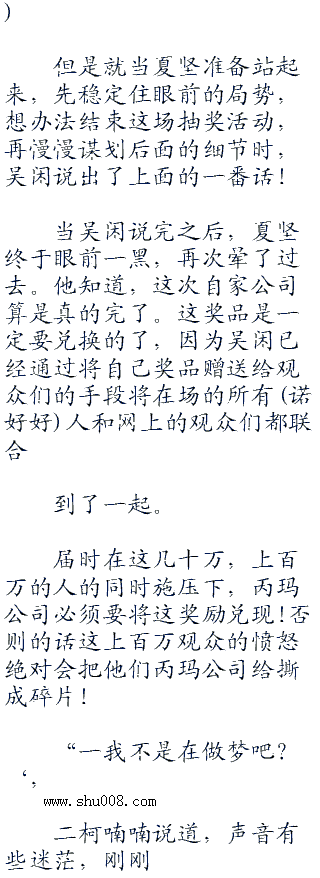 )
但是就当夏坚准备站起
来，先稳定住眼前的局势，
想办法结束这场抽奖活动，
再慢慢谋划后面的细节时，
吴闲说出了上面的一番话！
当吴闲说完之后，夏坚
终于眼前一黑，再次晕了过
去。他知道，这次自家公司
算是真的完了。这奖品是一
定要兑换的了，因为吴闲已
经通过将自己奖品赠送给观
众们的手段将在场的所有(诺
好好)人和网上的观众们都联
合
到了一起。
届时在这几十万，上百
万的人的同时施压下，丙玛
公司必须要将这奖励兑现！否
则的话这上百万观众的愤怒
绝对会把他们丙玛公司给撕
成碎片！
“一我不是在做梦吧？
‘，
www.shu008.com
二柯喃喃说道，声音有
些迷茫，刚刚